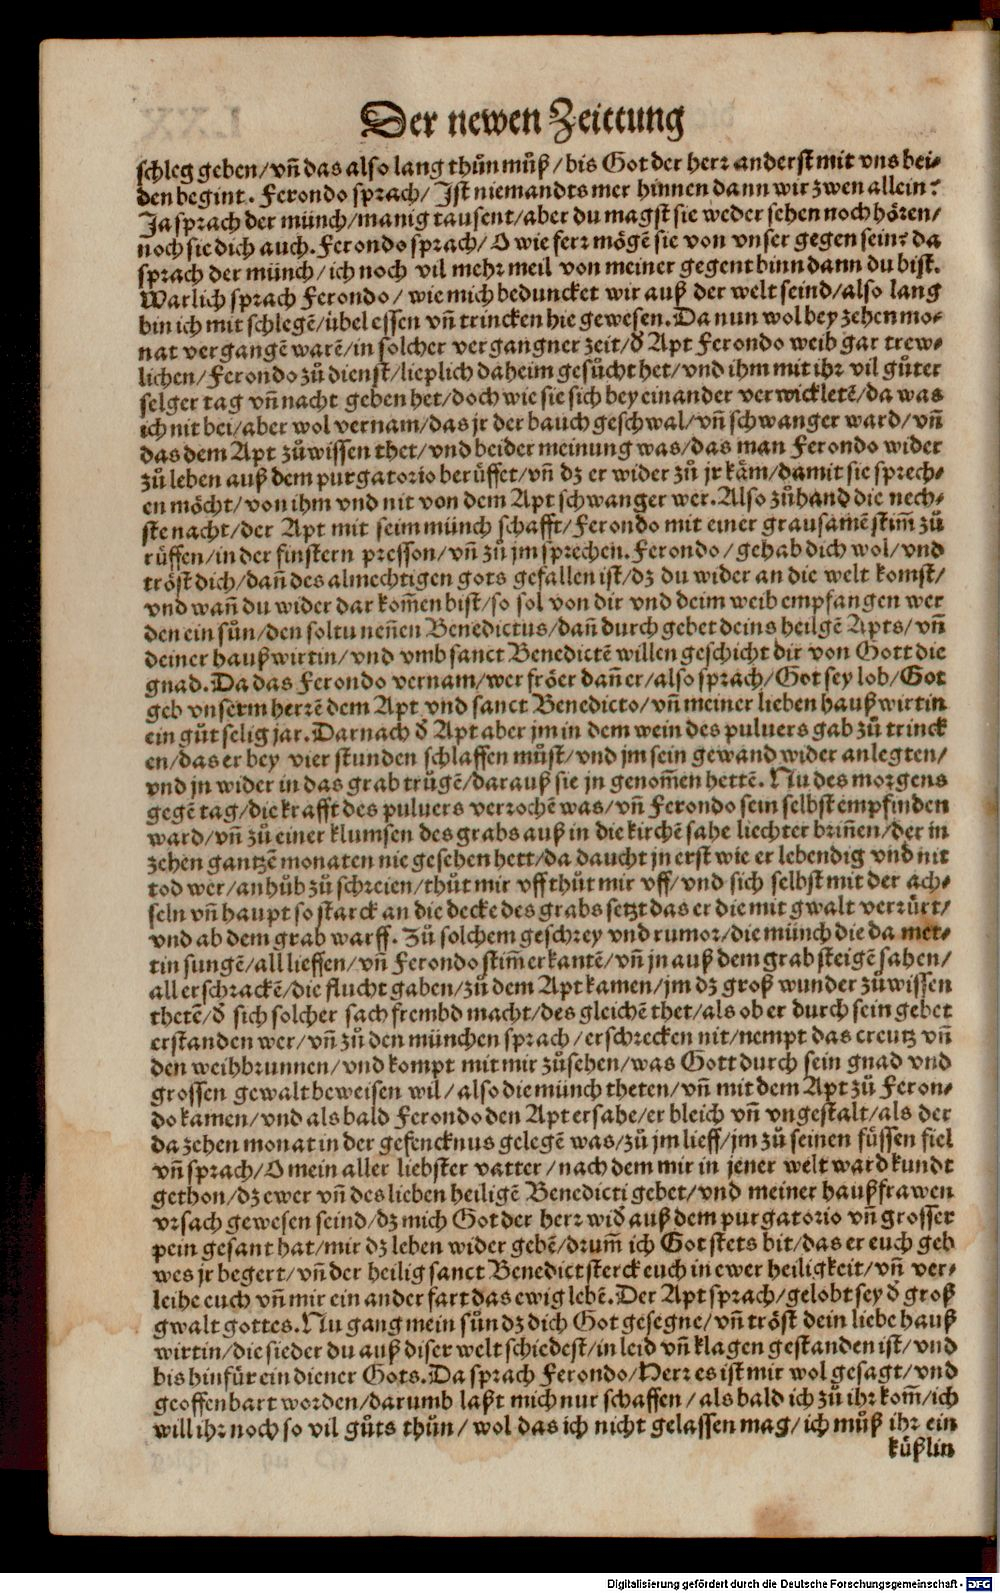 Der newen Zeittung
schleg geben/vn̄ das also lang thůn můß/bis Got der herr anderst mit vns bei-
den begint. Ferondo sprach/Jst niemandts mer hinnen dann wir zwen allein?
Ja sprach der münch/manig tausent/aber du magst sie weder sehen noch hören/
noch sie dich auch. Ferondo sprach/O wie ferr mögē sie von vnser gegen sein? da
sprach der münch/ich noch vil mehr meil von meiner gegent binn dann du bist.
Warlich sprach Ferondo/wie mich beduncket wir auß der welt seind/also lang
bin ich mit schlegē/übel essen vn̄ trincken hie gewesen. Da nun wol bey zehen mo-
nat vergangē warē/in solcher vergangner zeit/d̄ Apt Ferondo weib gar trew-
lichen/Ferondo zů dienst/lieplich daheim gesůcht het/vnd ihm mit ihr vil gůter
selger tag vn̄ nacht geben het/doch wie sie sich bey einander verwickletē/da was
ich nit bei/aber wol vernam/das jr der bauch geschwal/vn̄ schwanger ward/vn̄
das dem Apt zůwissen thet/vnd beider meinung was/das man Ferondo wider
zů leben auß dem purgatorio berůffet/vn̄ dz er wider zů jr käm/damit sie sprech-
en möcht/von ihm vnd nit von dem Apt schwanger wer. Also zůhand die nech-
ste nacht/der Apt mit seim münch schafft/Ferondo mit einer grausamē stim̄ zů
rüffen/in der finstern presson/vn̄ zů jm sprechen. Ferondo/gehab dich wol/vnd
tröst dich/dan̄ des almechtigen gots gefallen ist/dz du wider an die welt komst/
vnd wan̄ du wider dar kom̄en bist/so sol von dir vnd deim weib empfangen wer
den ein sůn/den soltu nen̄en Benedictus/dan̄ durch gebet deins heilgē Apts/vn̄
deiner haußwirtin/vnd vmb sanct Benedictē willen geschicht dir von Gott die
gnad. Da das Ferondo vernam/wer fröer dan̄ er/also sprach/Got sey lob/Got
geb vnserm herrē dem Apt vnd sanct Benedicto/vn̄ meiner lieben haußwirtin
ein gůt selig jar. Darnach d̄ Apt aber jm in dem wein des puluers gab zů trinck
en/das er bey vier stunden schlaffen můst/vnd jm sein gewand wider anlegten/
vnd jn wider in das grab trůgē/darauß sie jn genom̄en hettē. Nu des morgens
gegē tag/die krafft des puluers verrochē was/vn̄ Ferondo sein selbst empfinden
ward/vn̄ zů einer klumsen des grabs auß in die kirchē sahe liechter brin̄en/der in
zehen gantzē monaten nie gesehen hett/da daucht jn erst wie er lebendig vnd nit
tod wer/anhůb zů schreien/thůt mir vff thůt mir vff/vnd sich selbst mit der ach-
seln vn̄ haupt so starck an die decke des grabs setzt das er die mit gwalt verrürt/
vnd ab dem grab warff. Zů solchem geschrey vnd rumor/die münch die da met-
tin sungē/all lieffen/vn̄ Ferondo stim̄ erkantē/vn̄ jn auß dem grab steigē sahen/
all erschrackē/die flucht gaben/zů dem Apt kamen/jm dz groß wunder zůwissen
thetē/d̄ sich solcher sach frembd macht/des gleichē thet/als ob er durch sein gebet
erstanden wer/vn̄ zů den münchen sprach/erschrecken nit/nempt das creutz vn̄
den weihbrunnen/vnd kompt mit mir zůsehen/was Gott durch sein gnad vnd
grossen gewalt beweisen wil/also die münch theten/vn̄ mit dem Apt zů Feron-
do kamen/vnd als bald Ferondo den Apt ersahe/er bleich vn̄ vngestalt/als der
da zehen monat in der gefencknus gelegē was/zů jm lieff/jm zů seinen füssen fiel
vn̄ sprach/O mein aller liebster vatter/nach dem mir in jener welt ward kundt
gethon/dz ewer vn̄ des lieben heiligē Benedicti gebet/vnd meiner haußfrawen
vrsach gewesen seind/dz mich Got der herr wid̄ auß dem purgatorio vn̄ grosser
pein gesant hat/mir dz leben wider gebē/drum̄ ich Got stets bit/das er euch geb
wes jr begert/vn̄ der heilig sanct Benedict sterck euch in ewer heiligkeit/vn̄ ver-
leihe euch vn̄ mir ein ander fart das ewig lebē. Der Apt sprach/gelobt sey d̄ groß
gwalt gottes. Nu gang mein sůn dz dich Got gesegne/vn̄ tröst dein liebe hauß
wirtin/die sieder du auß diser welt schiedest/in leid vn̄ klagen gestanden ist/vnd
bis hinfür ein diener Gots. Da sprach Ferondo/Herr es ist mir wol gesagt/vnd
geoffenbart worden/darumb laßt mich nur schaffen/als bald ich zů ihr kom̄/ich
will ihr noch so vil gůts thůn/wol das ich nicht gelassen mag/ich můß ihr ein
küßlin
Digitalisierung gefördert durch die Deutsche Forschungsgemeinschaft - DFG